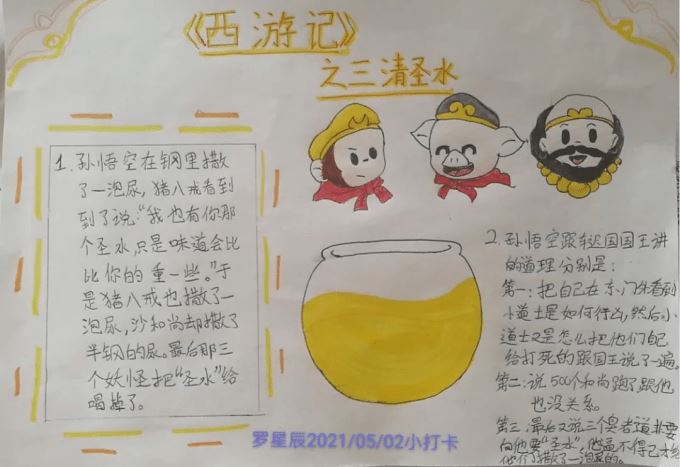 《西游记》
之三清圣水
1. 孙悟空在钢里撒
了一泡尿，猪八戒看到
到了说："我也有你那
个圣水，只是味道会比
比你的重一些。"于
是猪八戒也撒了一
泡尿，沙和尚却撒了
半钢的尿。最后那三
个妖怪把"圣水"给
喝掉了。
2. 孙悟空跟车迟国国王讲
的道理分别是：
第一：把自己在东门外看到
小道士是如何行凶，然后小
道士又是怎么把他们自己
给打死的跟国王说了一遍。
第二：说500个和尚跑了跟他
也没关系。
第三：最后又说三个老道非要
向他要"圣水"，他逼不得已才给
他们撒了一泡尿的。
罗星辰2021/05/02小打卡